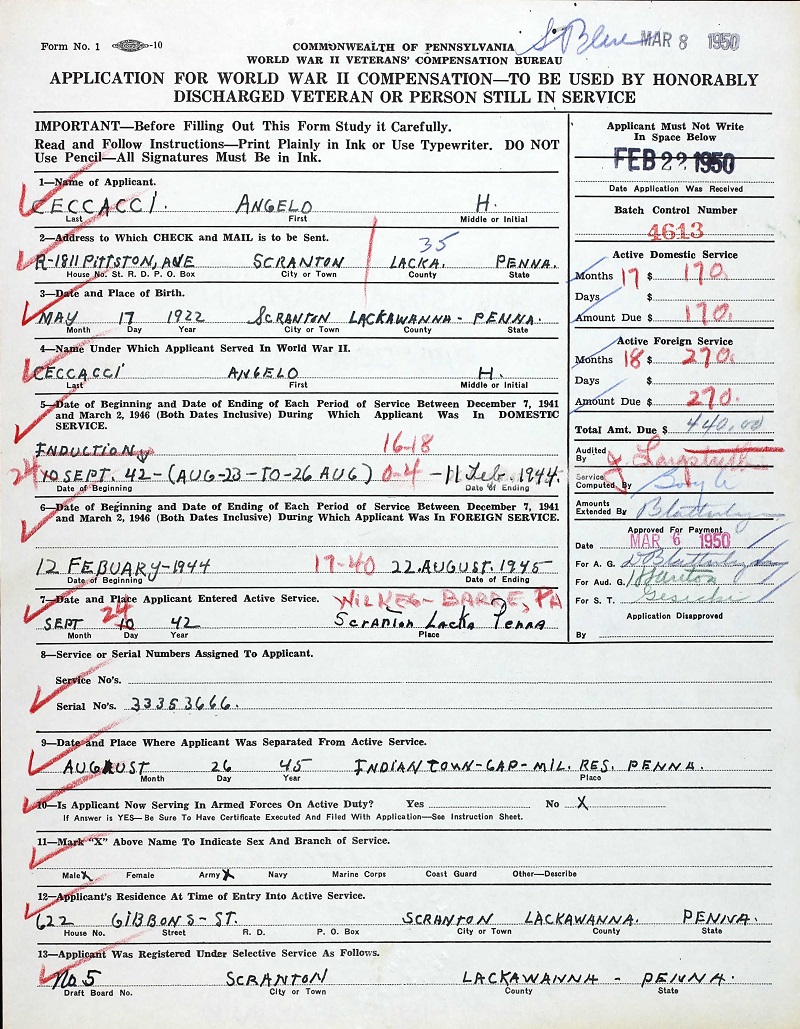 Form No. 1 -10
COMMONWEALTH OF PENNSYLVANIA
MAR 8 1950
WORLD WAR II VETERANS' COMPENSATION BUREAU
APPLICATION FOR WORLD WAR II COMPENSATION—TO BE USED BY HONORABLY
DISCHARGED VETERAN OR PERSON STILL IN SERVICE
IMPORTANT—Before Filling Out This Form Study it Carefully.
Read and Follow Instructions—Print Plainly in Ink or Use Typewriter. DO NOT
Use Pencil—All Signatures Must Be in Ink.
1—Name of Applicant.
CECCACCI. ANGELO H.
Last First Middle or Initial
2—Address to Which CHECK and MAIL is to be Sent.
35
R-1811 PITTSTON, AVE SCRANTON LACKA. PENNA.
House No. St. R. D. P. O. Box City or Town County State
3—Date and Place of Birth.
MAY 17 1922 SCRANTON LACKAWANNA- PENNA.
Month Day Year City or Town County State
4—Name Under Which Applicant Served In World War II.
CECCACCI ANGELO H.
Last First Middle or Initial
5—Date of Beginning and Date of Ending of Each Period of Service Between December 7, 1941
and March 2, 1946 (Both Dates Inclusive) During Which Applicant Was In DOMESTIC
SERVICE.
INDUCTION 16-18
24 10 SEPT. 42-(AUG-23-TO-26 AUG) 0-4 -11 Feb. 1944.
Date of Beginning Date of Ending
6—Date of Beginning and Date of Ending of Each Period of Service Between December 7, 1941
and March 2, 1946 (Both Dates Inclusive) During Which Applicant Was In FOREIGN SERVICE.
12 FEBUARY-1944 17-40 22.AUGUST.1945
Date of Beginning Date of Ending
7—Date and Place Applicant Entered Active Service. WILKES-BARRE, PA
24
SEPT 10 42 Scranton Lacka Penna
Month Day Year Place
8—Service or Serial Numbers Assigned To Applicant.
Service No's.
Serial No's. 33353666.
9—Date and Place Where Applicant Was Separated From Active Service.
AUGAUST 26 45 INDIANTOWN-GAP-MIL. RES. PENNA.
Month Day Year Place
10—Is Applicant Now Serving In Armed Forces On Active Duty? Yes No X
If Answer is YES—Be Sure To Have Certificate Executed And Filed With Application—See Instruction Sheet.
11—Mark "X" Above Name To Indicate Sex And Branch of Service.
Male X Female Army X Navy Marine Corps Coast Guard Other—Describe
12—Applicant's Residence At Time of Entry Into Active Service.
622 GIBBONS-ST. SCRANTON LACKAWANNA. PENNA.
House No. Street R. D. P. O. Box City or Town County State
13—Applicant Was Registered Under Selective Service As Follows.
No. 5 SCRANTON LACKAWANNA - PENNA.
Draft Board No. City or Town County State
Applicant Must Not Write
In Space Below
FEB 22 1950
Date Application Was Received
Batch Control Number
4613
Active Domestic Service
Months 17 $ 170.
Days $
Amount Due $ 170.
Active Foreign Service
Months 18 $ 270.
Days $
Amount Due $ 270.
Total Amt. Due $ 440.00
Audited
By
Service
Computed By
Amounts
Extended By
Approved For Payment
Date MAR 6 1950
For A. G.
For Aud. G.
For S. T.
Application Disapproved
By